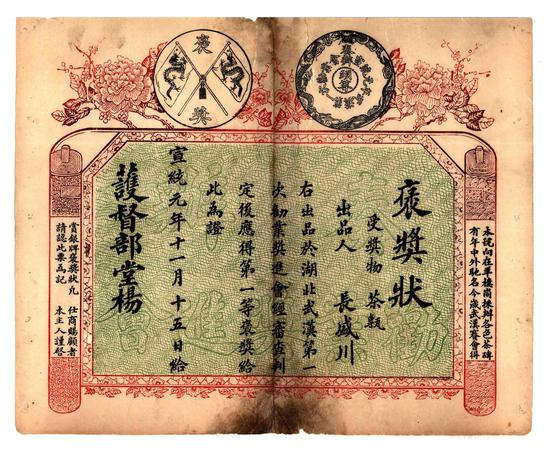 褒獎
褒獎狀
受獎物 茶瓶
出品人 長盛川
右出品於湖北武漢第一
次勸業獎進會經審查判
定後應得第一等褒獎給
此為證
宣統元年十一月十五日給
護督部堂楊
本號向在羊樓崗揀辦各色茶磚
有年中外馳名今歲武漢賽會得
賞銀牌褒獎狀凡 仕商賜顧者
請認此票為記 本主人謹啓